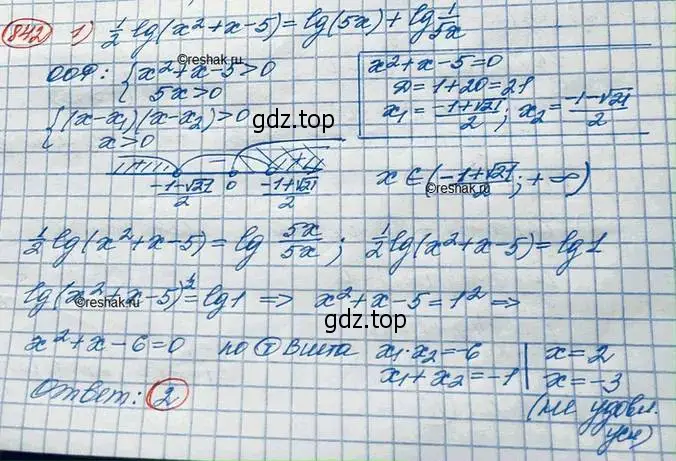 842 1) 1/2 lg(x²+x-5)=lg(5x)+lg 1/5x
©reshak.ru
ООФ: { x²+x-5>0
5x>0
x²+x-5=0
D=1+20=21
x₁= (-1+√21)/2 ; x₂= (-1-√21)/2
{ (x-x₁)(x-x₂)>0
x>0
gdz.top
(-1-√21)/2 0 (-1+√21)/2
x∈( (-1+√21)/2 ; +∞)
©reshak.ru
1/2 lg(x²+x-5)=lg 5x/5x ; 1/2 lg(x²+x-5)=lg1
lg(x²+x-5)^1/2=lg1 => x²+x-5=1² =>
©reshak.ru
gdz.top
x²+x-6=0 по Т Виета x₁·x₂=-6 | x=2
x₁+x₂=-1 | x=-3
(не удовл. усл)
Ответ: 2
gdz.top